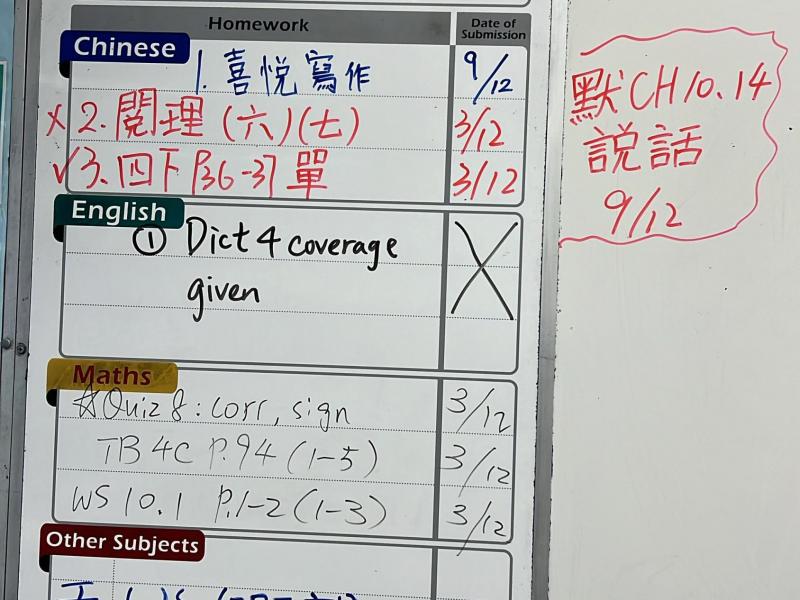 Homework
Date of
Submission
Chinese
1. 喜悅寫作 9/12
x 2. 閱理 (六)(七) 3/12
✓3. 四下 P36-37 單 3/12
English
① Dict 4 coverage
given
Maths
☆Quiz 8: corr, sign 3/12
TB 4C P.94 (1-5) 3/12
WS 10.1 P.1-2 (1-3) 3/12
Other Subjects
默CH10.14
説話
9/12